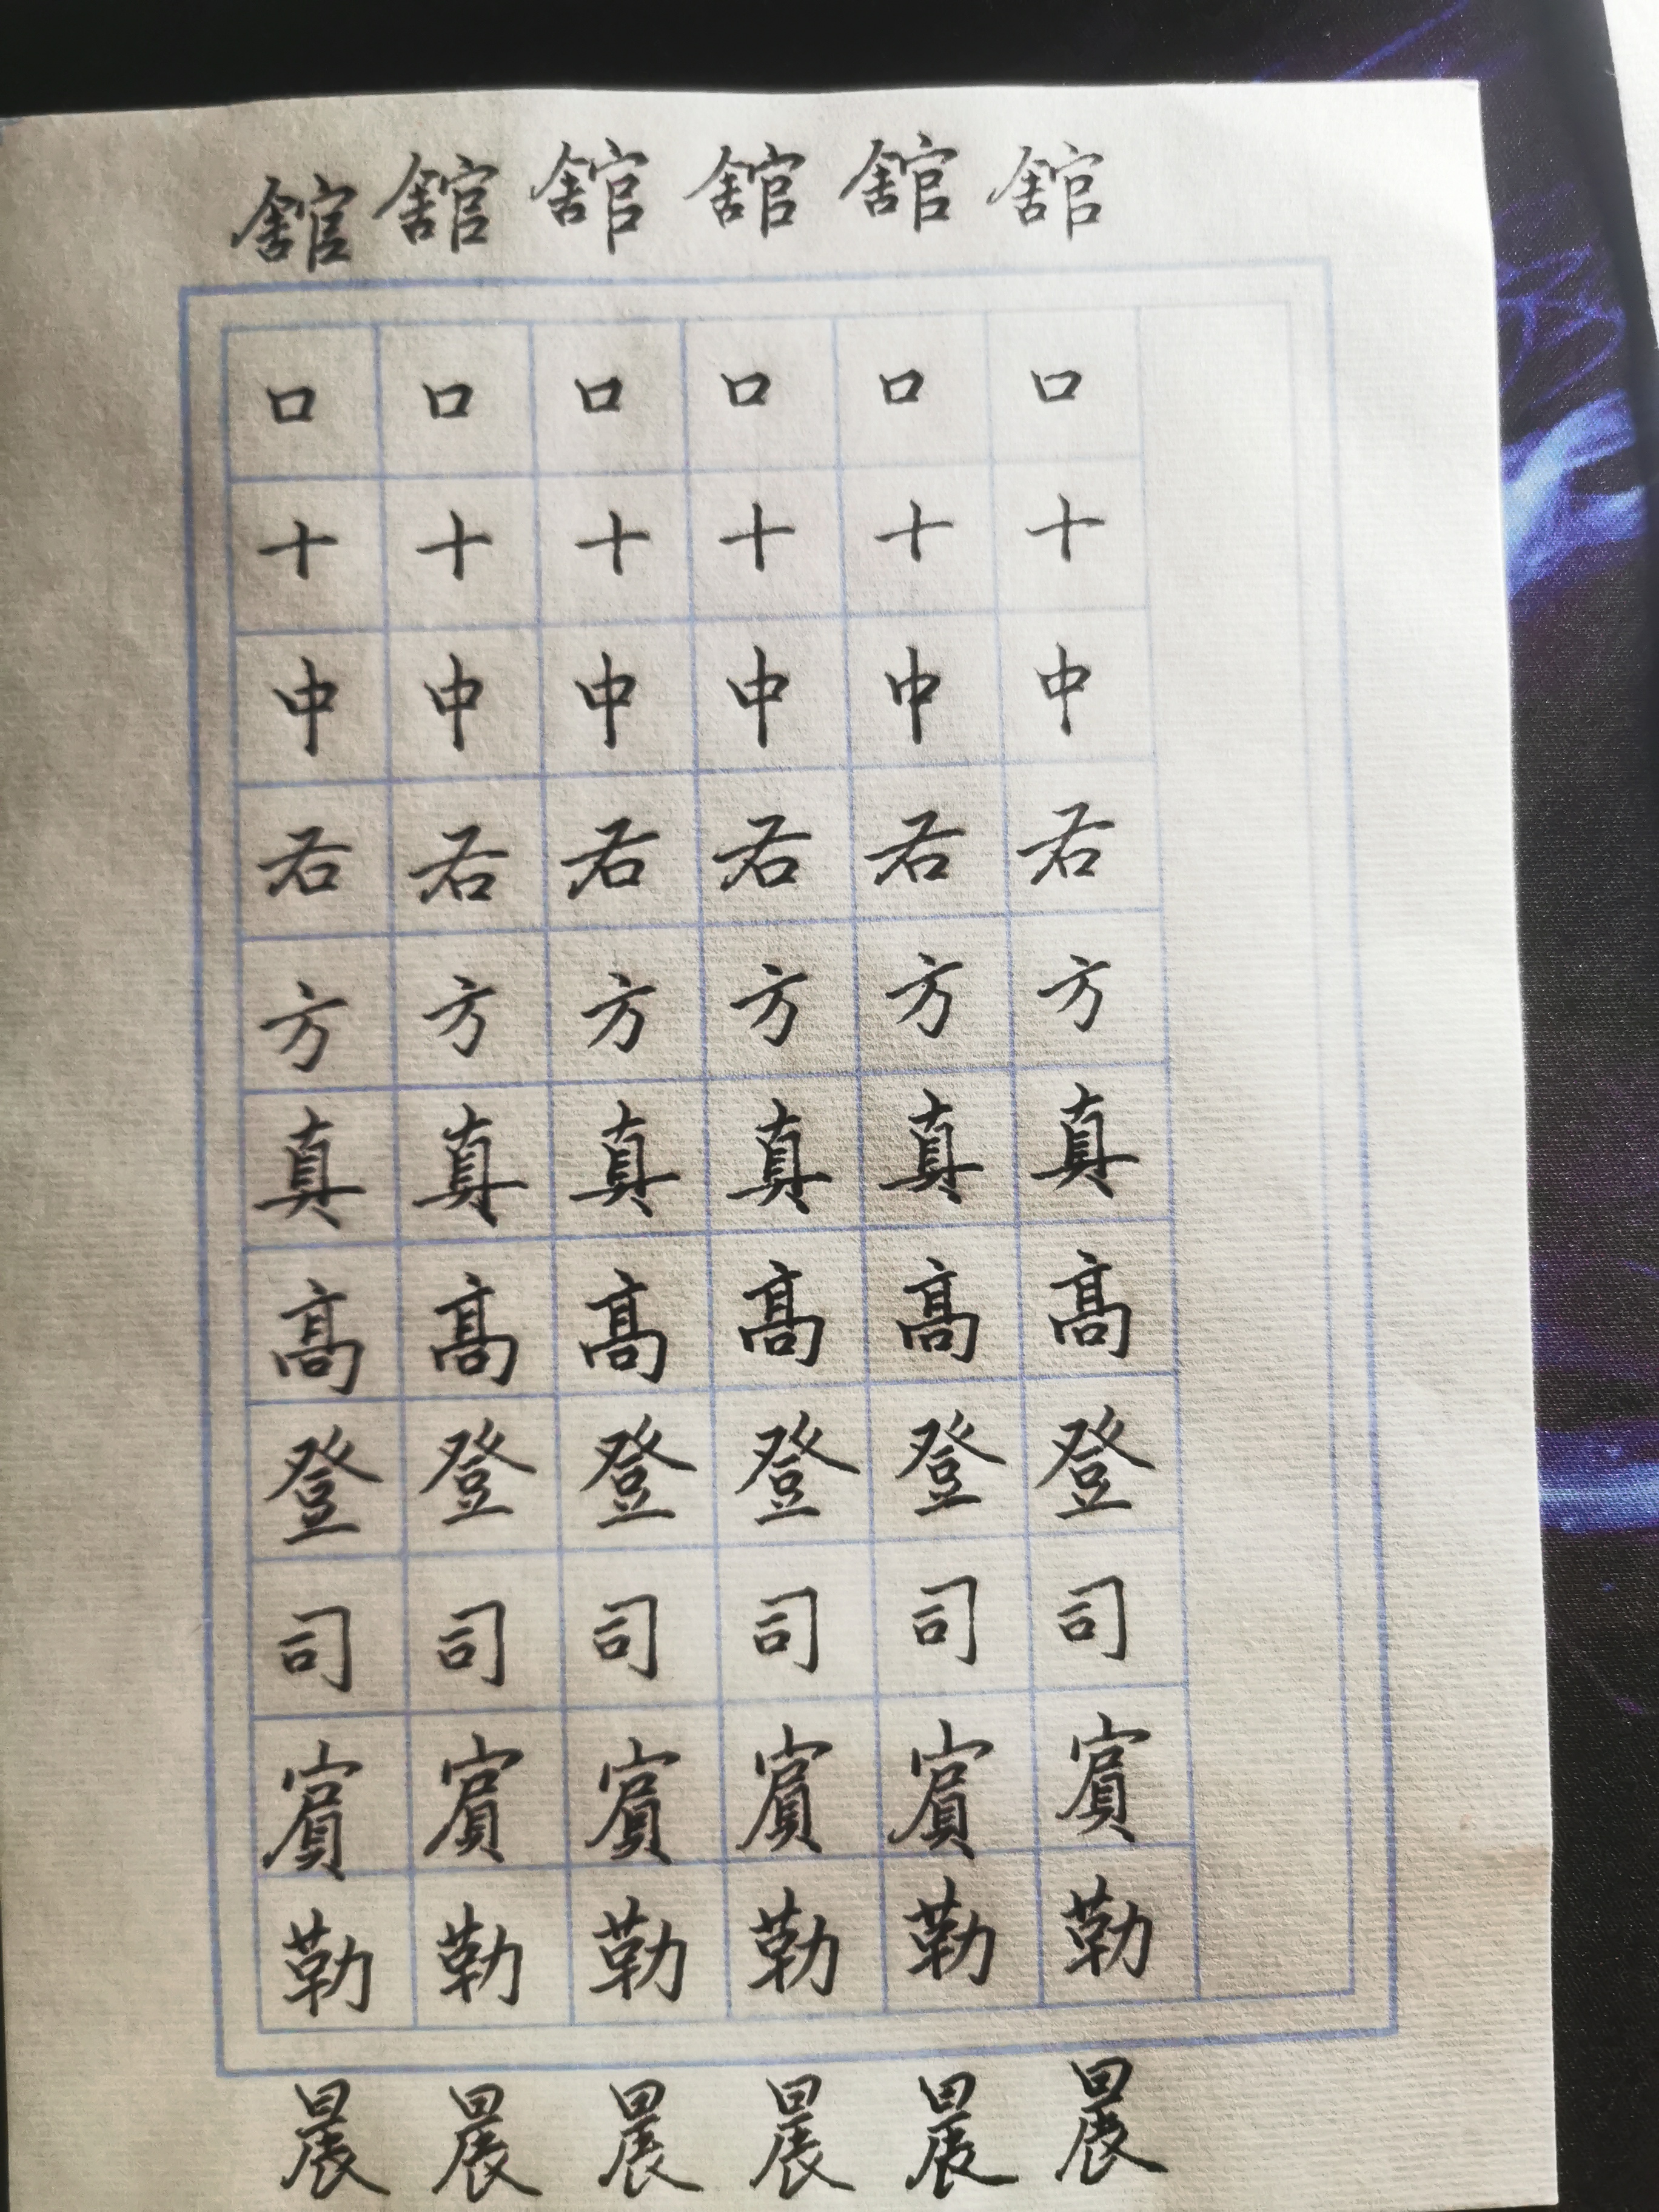 舘舘舘舘舘舘
口口口口口口
十十十十十十
中中中中中中
右右右右右右
方方方方方方
真真真真真真
高高高高高高
登登登登登登
司司司司司司
賔賔賔賔賔賔
勒勒勒勒勒勒
晨晨晨晨晨晨